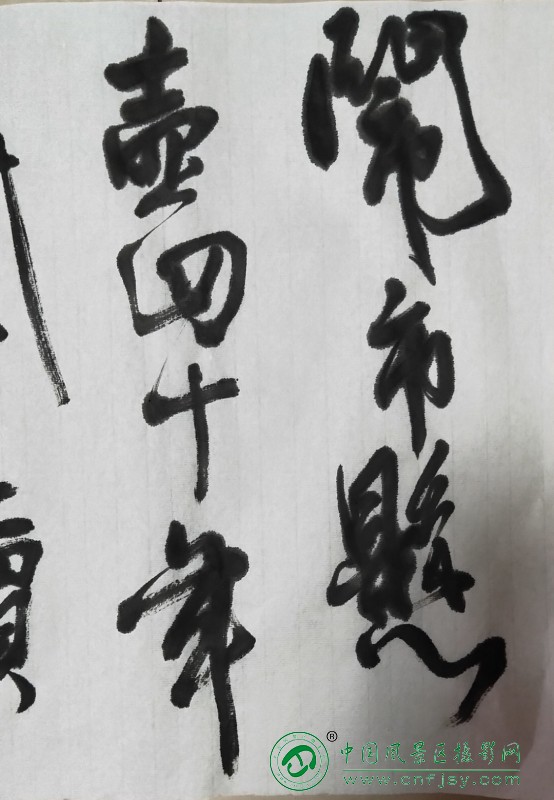 鬧市懸
壺四十年
® 中国风景区摄影网
www.cnfjsy.com